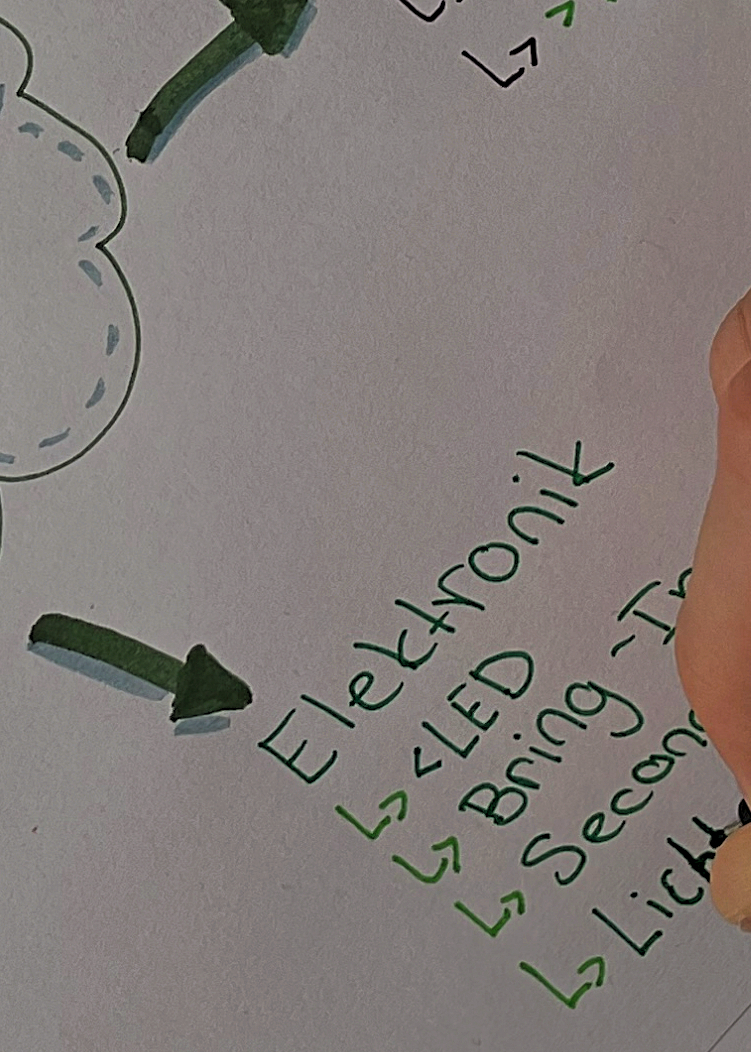 Elektronik
↳ <LED
↳ Bring-In
↳ Secon
↳ Licht